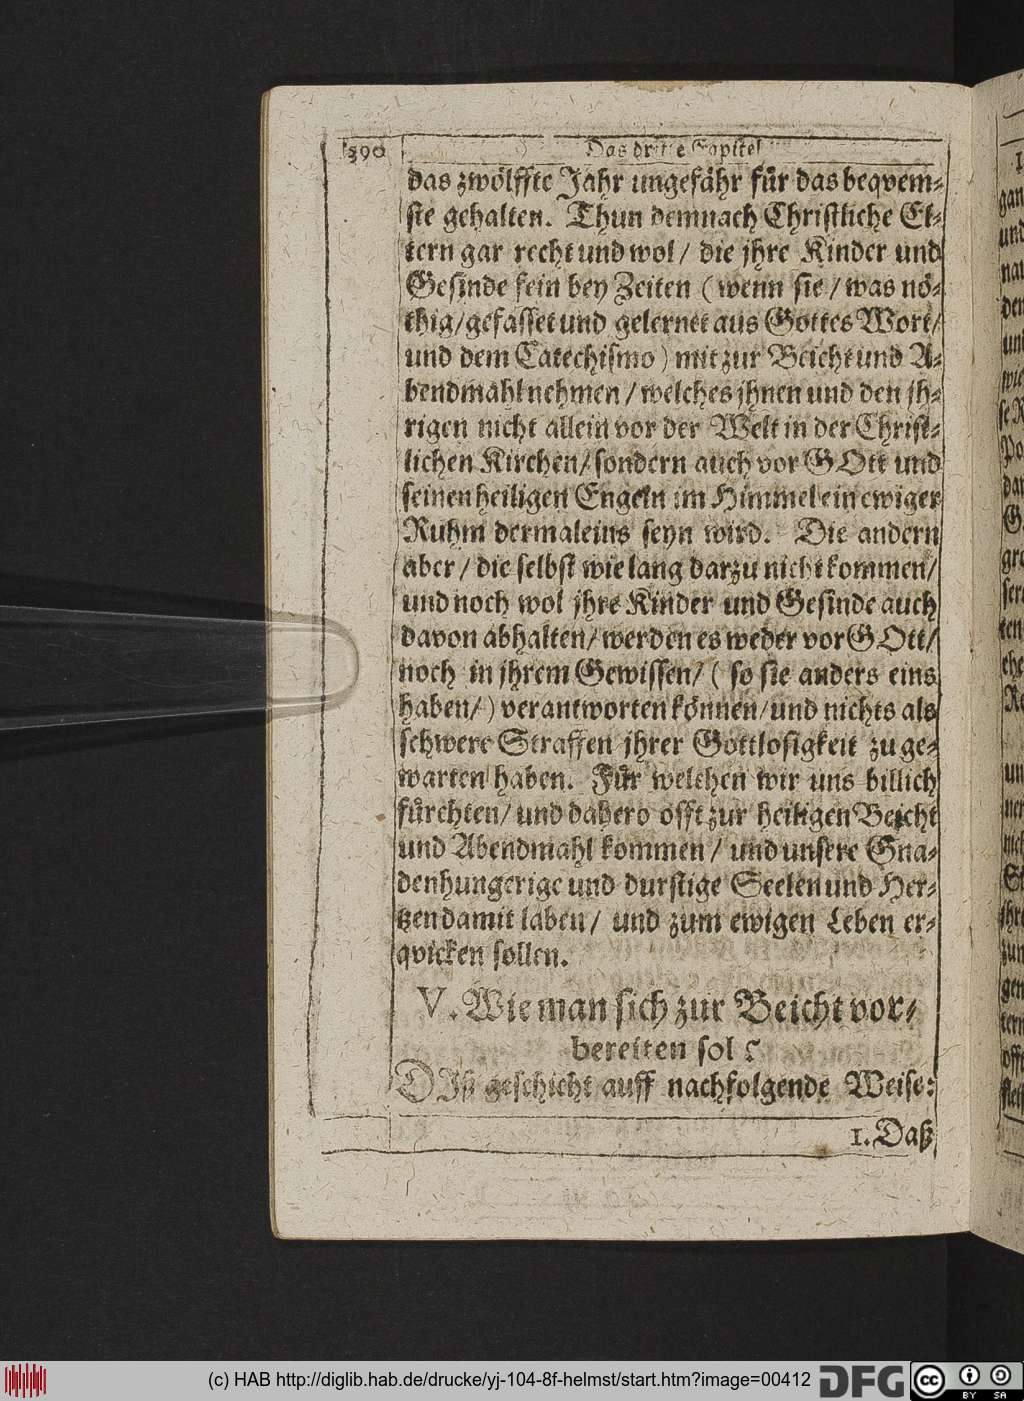 390 Das dritte Capitel
das zwölffte Jahr ungefähr für das beqvem-
ste gehalten. Thun demnach Christliche El-
tern gar recht und wol / die jhre Kinder und
Gesinde fein bey Zeiten ( wenn sie / was nö-
thig / gefasset und gelernet aus Gottes Wort /
und dem Catechismo ) mit zur Beicht und A-
bendmahl nehmen / welches jhnen und den jh-
rigen nicht allein vor der Welt in der Christ-
lichen Kirchen / sondern auch vor GOtt und
seinen heiligen Engeln im Himmel ein ewiger
Ruhm dermaleins seyn wird. Die andern
aber / die selbst wie lang darzu nicht kommen /
und noch wol jhre Kinder und Gesinde auch
davon abhalten / werden es weder vor GOtt /
noch in jhrem Gewissen / ( so sie anders eins
haben / ) verantworten können / und nichts als
schwere Straffen jhrer Gottlosigkeit zu ge-
warten haben. Für welchen wir uns billich
fürchten / und dahero offt zur heiligen Beicht
und Abendmahl kommen / und unsere Gna-
denhungerige und durstige Seelen und Her-
tzen damit laben / und zum ewigen Leben er-
qvicken sollen.
V. Wie man sich zur Beicht vor-
bereiten sol?
DIß geschicht auff nachfolgende Weise:
1. Daß
(c) HAB http://diglib.hab.de/drucke/yj-104-8f-helmst/start.htm?image=00412 DFG cc BY SA